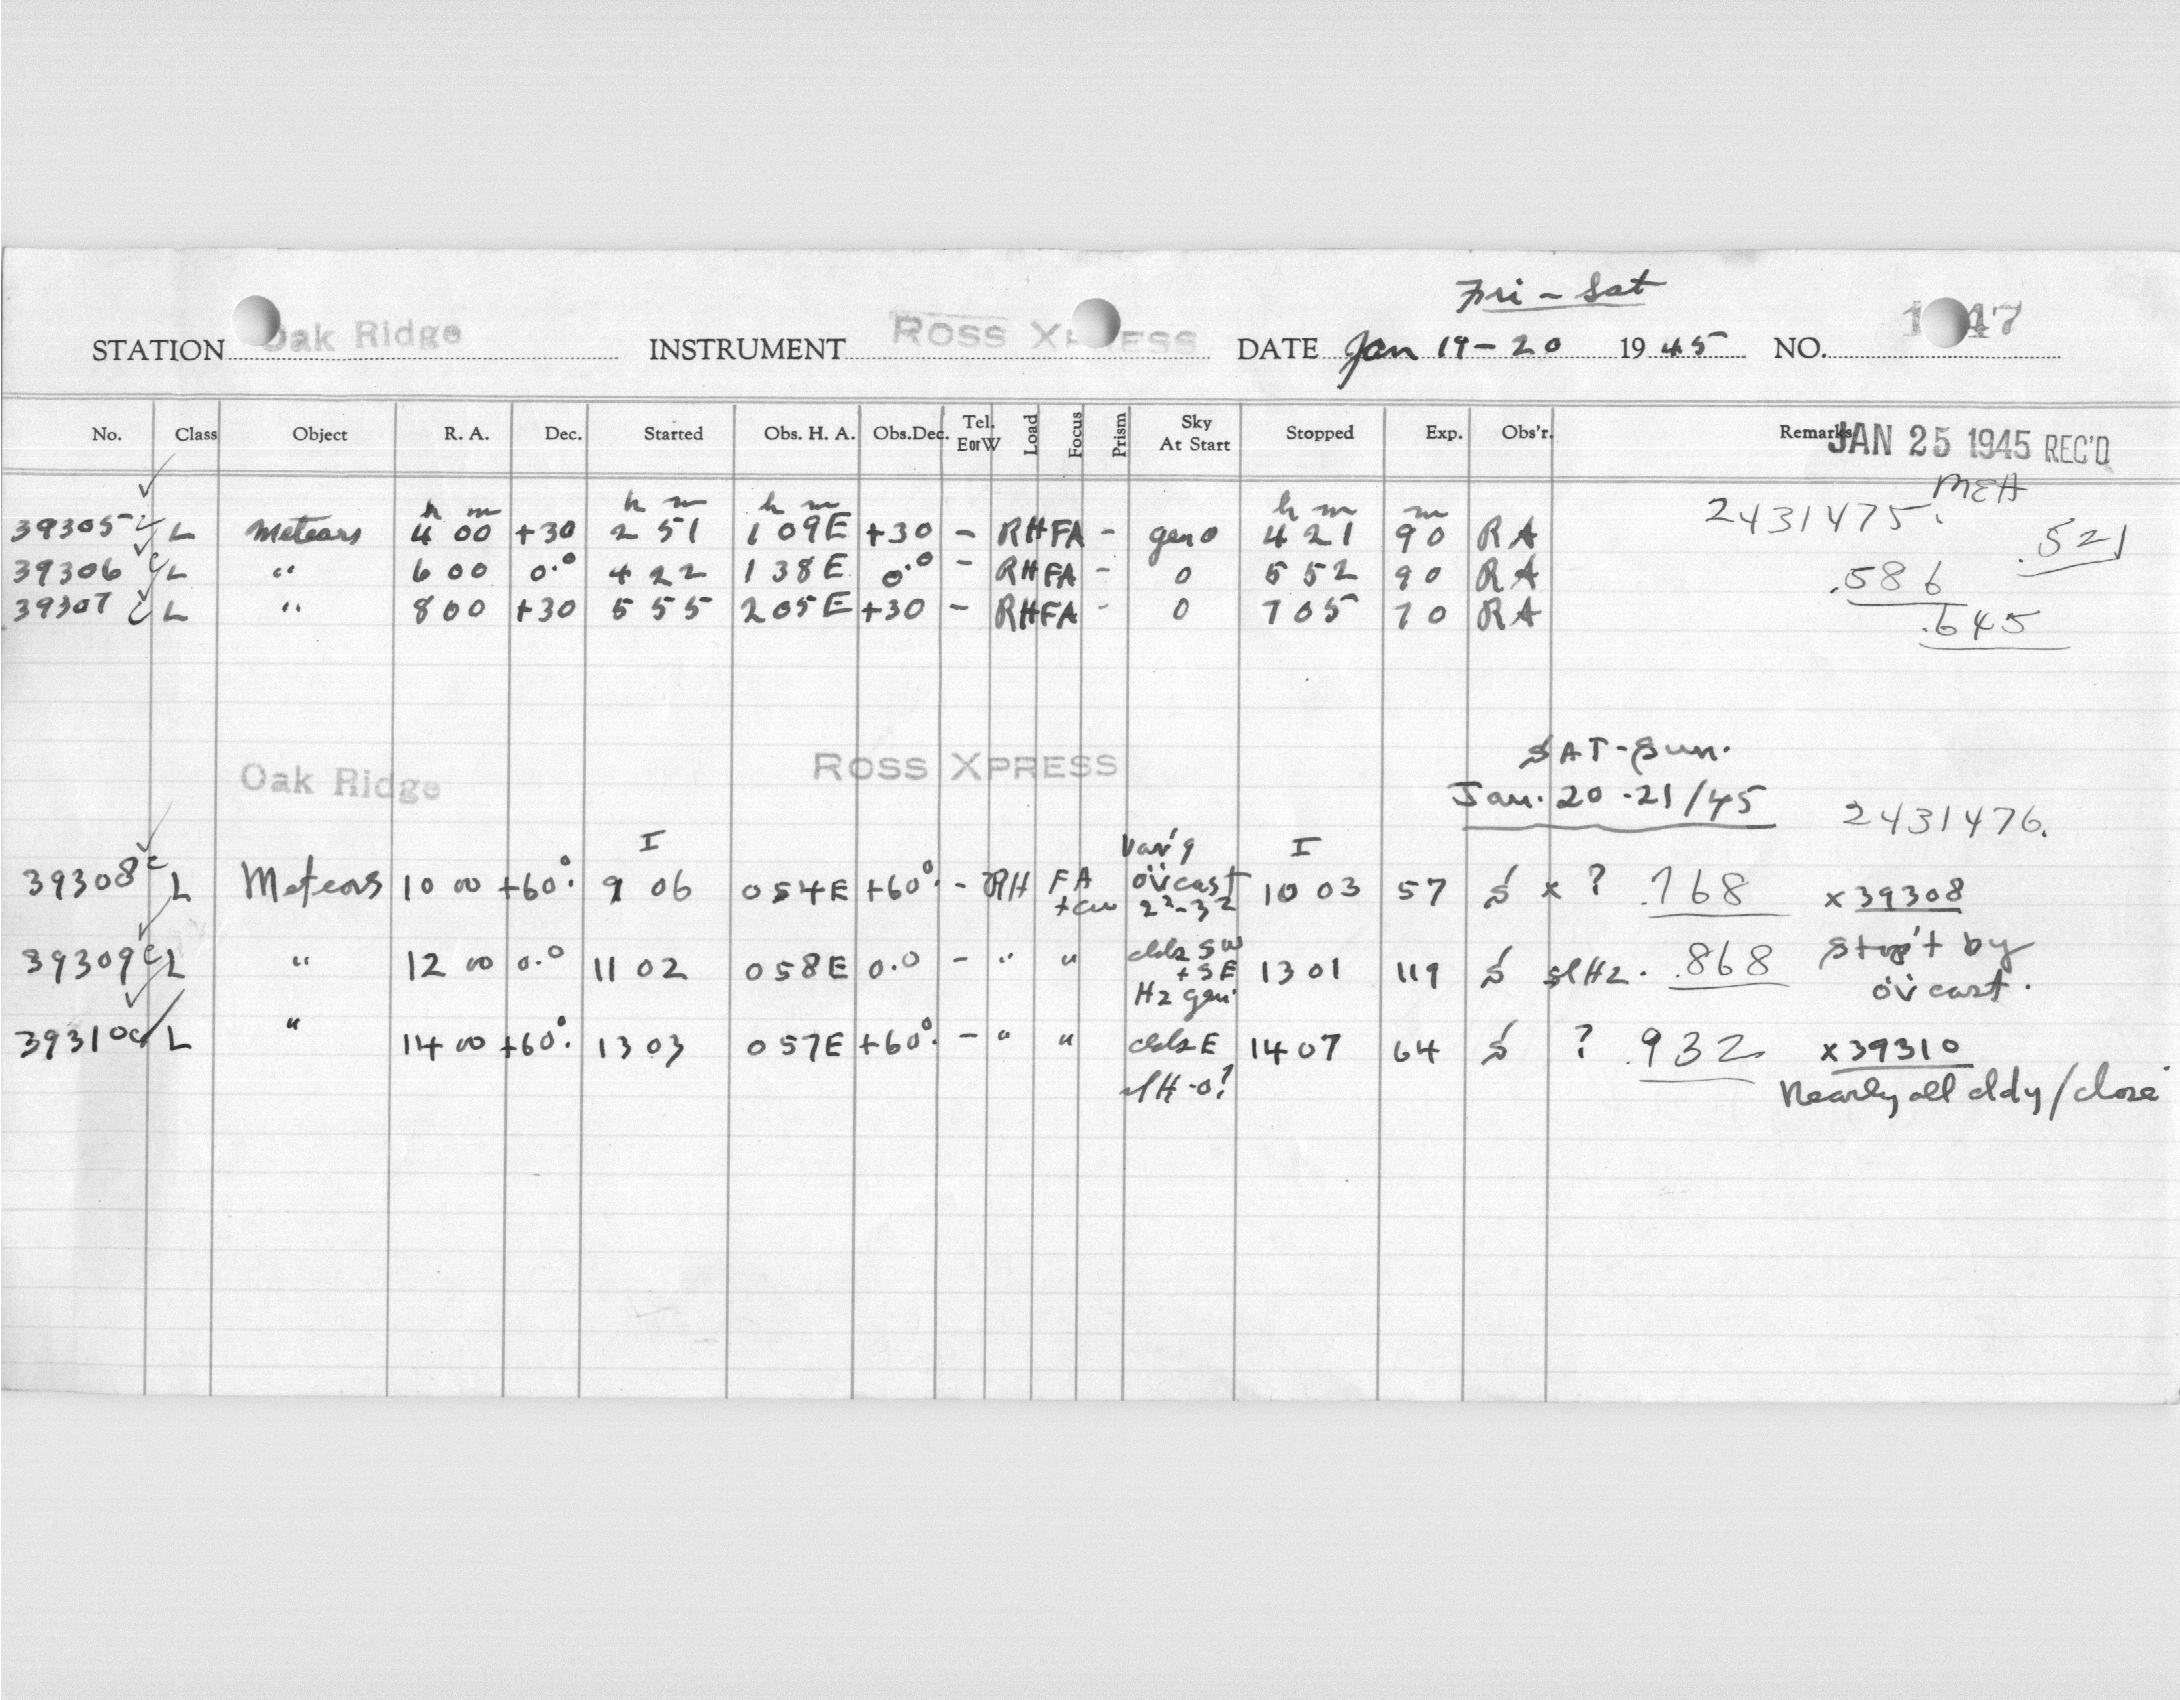 Fri - Sat
STATION Oak Ridge INSTRUMENT ROSS XPRESS DATE Jan 19-20 1945 NO. 47
No. Class Object R. A. Dec. Started Obs. H. A. Obs.Dec. Tel. EorW Load Focus Prism Sky At Start Stopped Exp. Obs'r. Remarks JAN 25 1945 REC'D
MEH
h m h m h m h m m 2431475.
39305 L Meteors 4 00 +30 2 51 1 09E +30 - RH FA - gen 0 4 21 90 RA .521
39306 L " 6 00 0.0 4 22 1 38E 0.0 - RH FA - 0 5 52 90 RA .586
39307 L " 8 00 +30 5 55 2 05E +30 - RH FA - 0 7 05 70 RA .645
SAT-Sun.
Oak Ridge ROSS XPRESS Jan. 20-21/45
2431476.
I I
39308 c L Meteors 10 00 +60°. 9 06 0 54E +60°. - RH FA Var'g ovcast 10 03 57 S x ? .768 x 39308
39309 c L " 12 00 0.0 11 02 0 58E 0.0 - " " clds SW + SE Hz gen. 13 01 119 S slHz. .868 Stop't by ovcast.
39310 c L " 14 00 +60°. 13 03 0 57E +60°. - " " clds E slH-0? 14 07 64 S ? .932 x 39310
Nearly all cldy/close